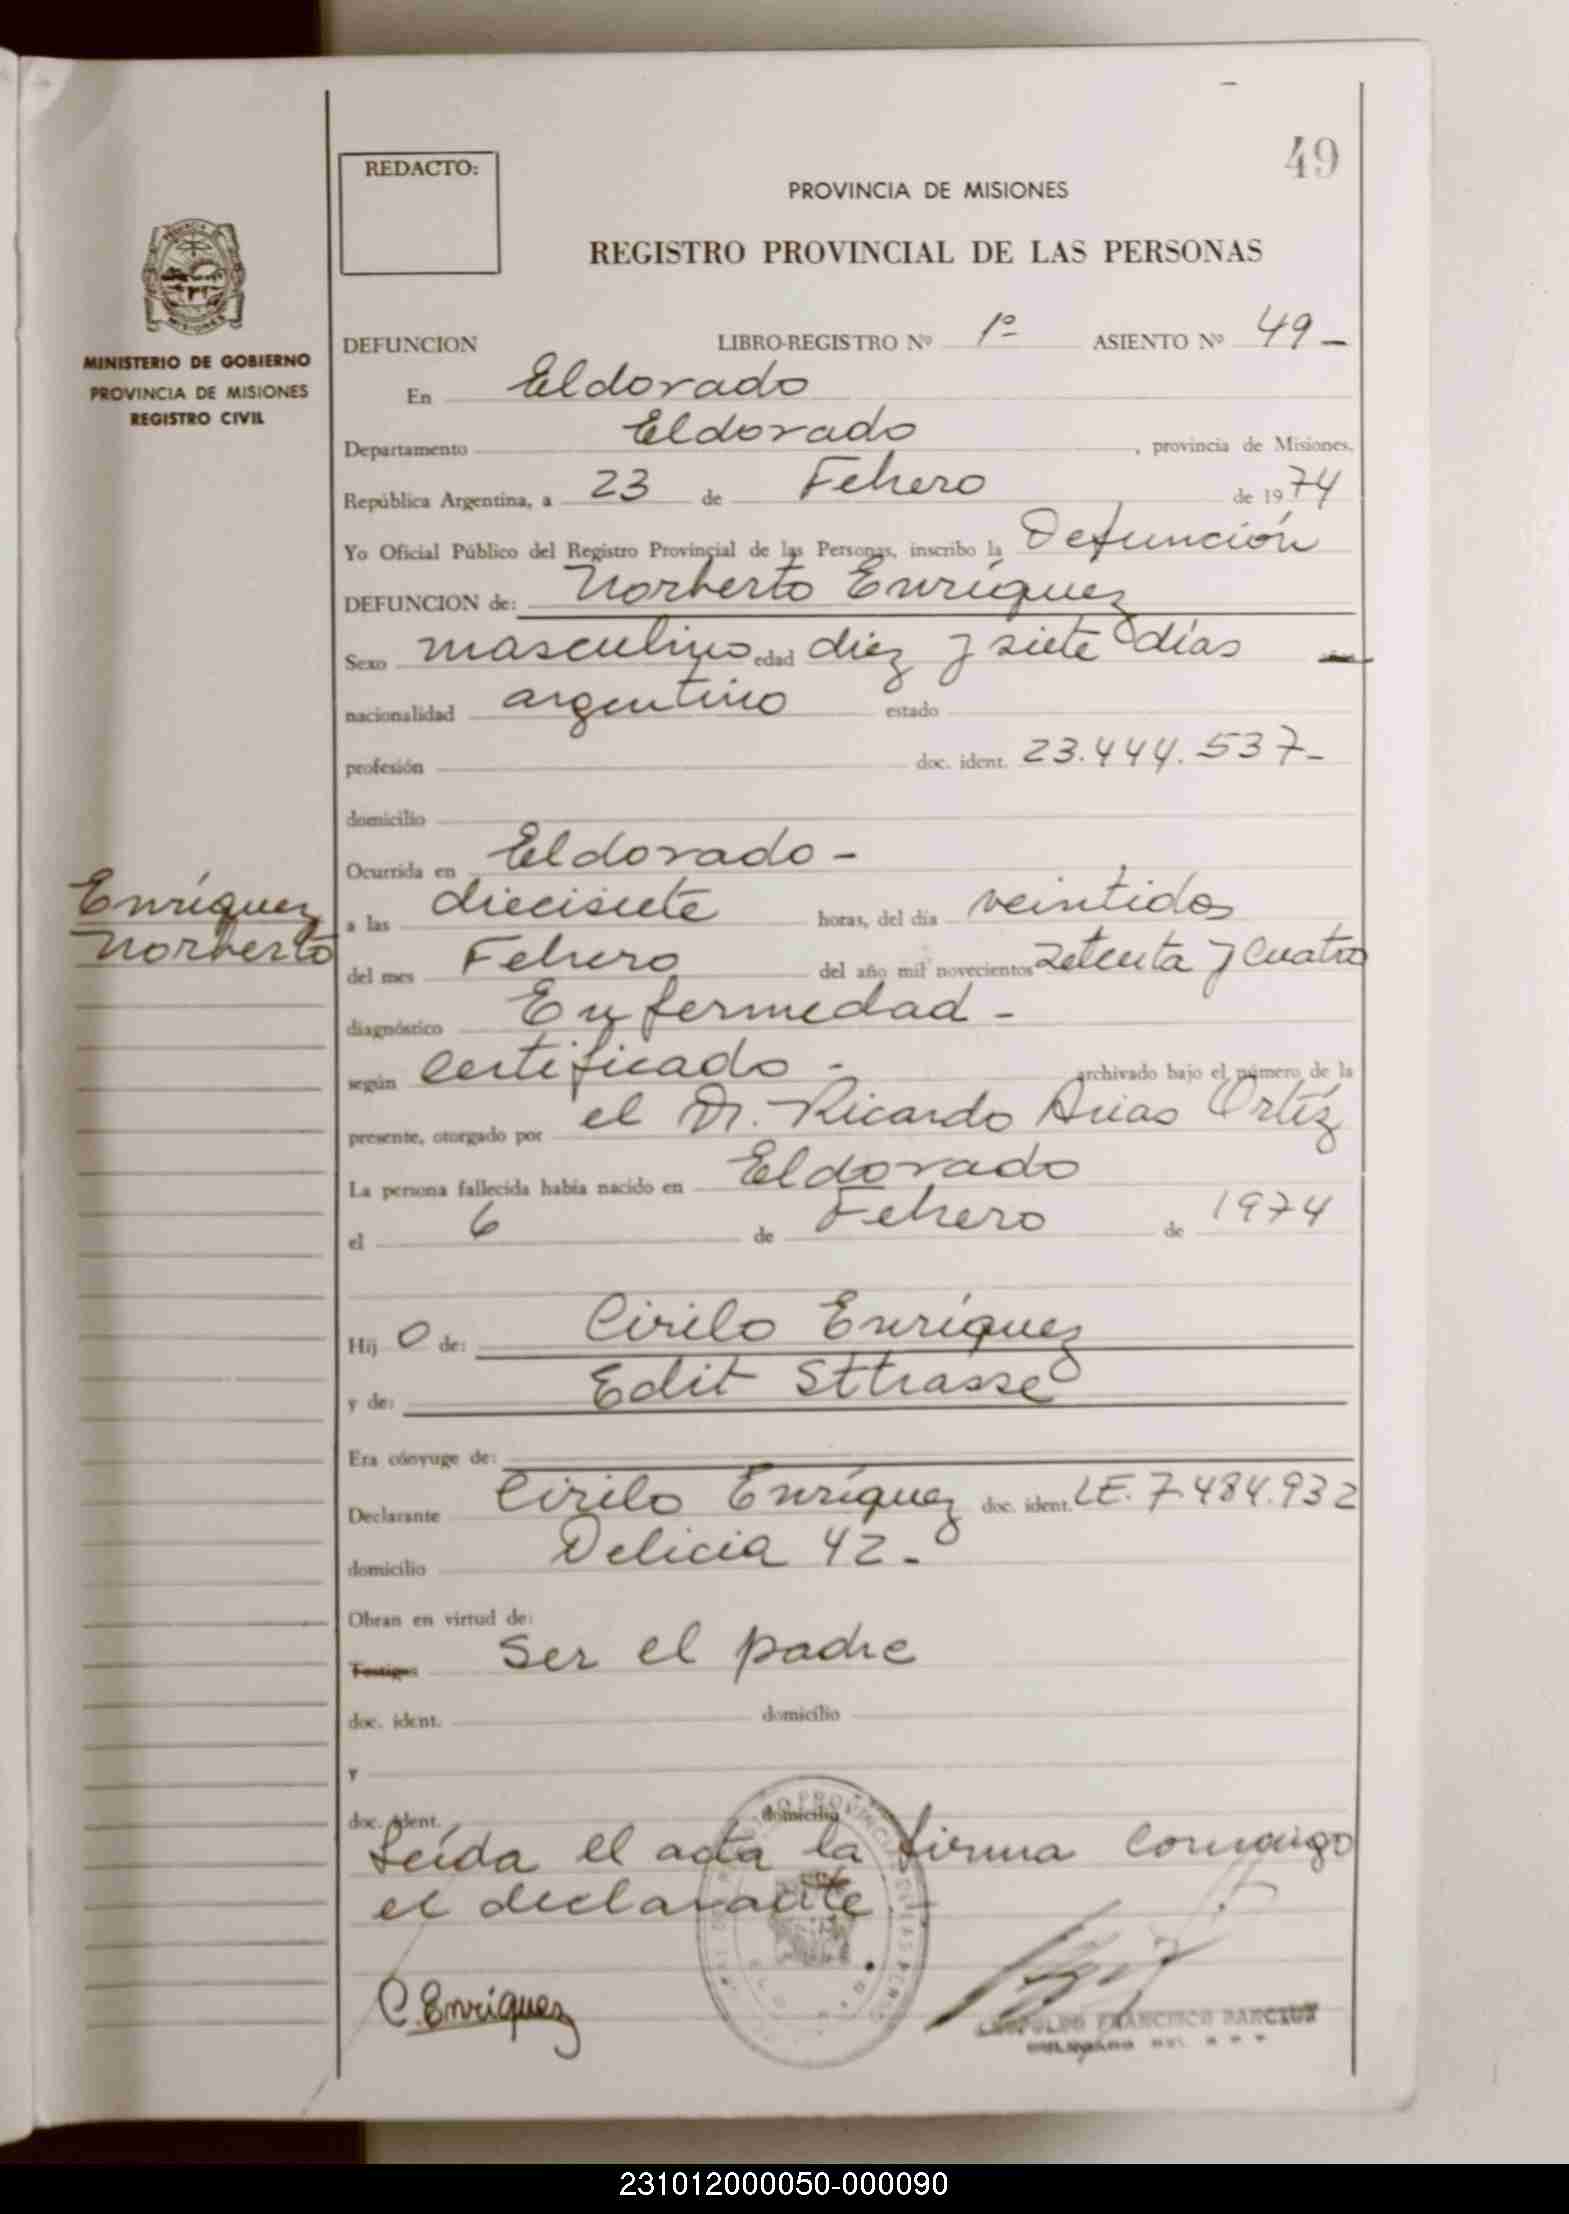 49
REDACTO:
PROVINCIA DE MISIONES
REGISTRO PROVINCIAL DE LAS PERSONAS
MINISTERIO DE GOBIERNO
PROVINCIA DE MISIONES
REGISTRO CIVIL
DEFUNCION LIBRO-REGISTRO Nº 1º ASIENTO Nº 49-
En Eldorado
Departamento Eldorado, provincia de Misiones,
República Argentina, a 23 de Febrero de 1974
Yo Oficial Público del Registro Provincial de las Personas, inscribo la Defunción
DEFUNCION de: Norberto Enríquez
Sexo masculino edad diez y siete días -
nacionalidad argentino estado
profesión doc. ident. 23.444.537-
domicilio
Ocurrida en Eldorado-
Enríquez
Norberto
a las diecisiete horas, del día veintidos
del mes Febrero del año mil novecientos setenta y cuatro
diagnóstico Enfermedad-
según Certificado - archivado bajo el número de la
presente, otorgado por el Dr. Ricardo Arias Ortíz
La persona fallecida había nacido en Eldorado
el 6 de Febrero de 1974
Hijo de: Cirilo Enríquez
y de: Edit Sttrasse
Era cónyuge de:
Declarante Cirilo Enríquez doc. ident. LE. 7.484.932
domicilio Delicia 42-
Obran en virtud de:
Testigos Ser el padre
doc. ident. domicilio
y
doc. ident. domicilio
Leída el acta la firma conmigo
el declarante
C. Enriquez
LEOPOLDO FRANCISCO
231012000050-000090